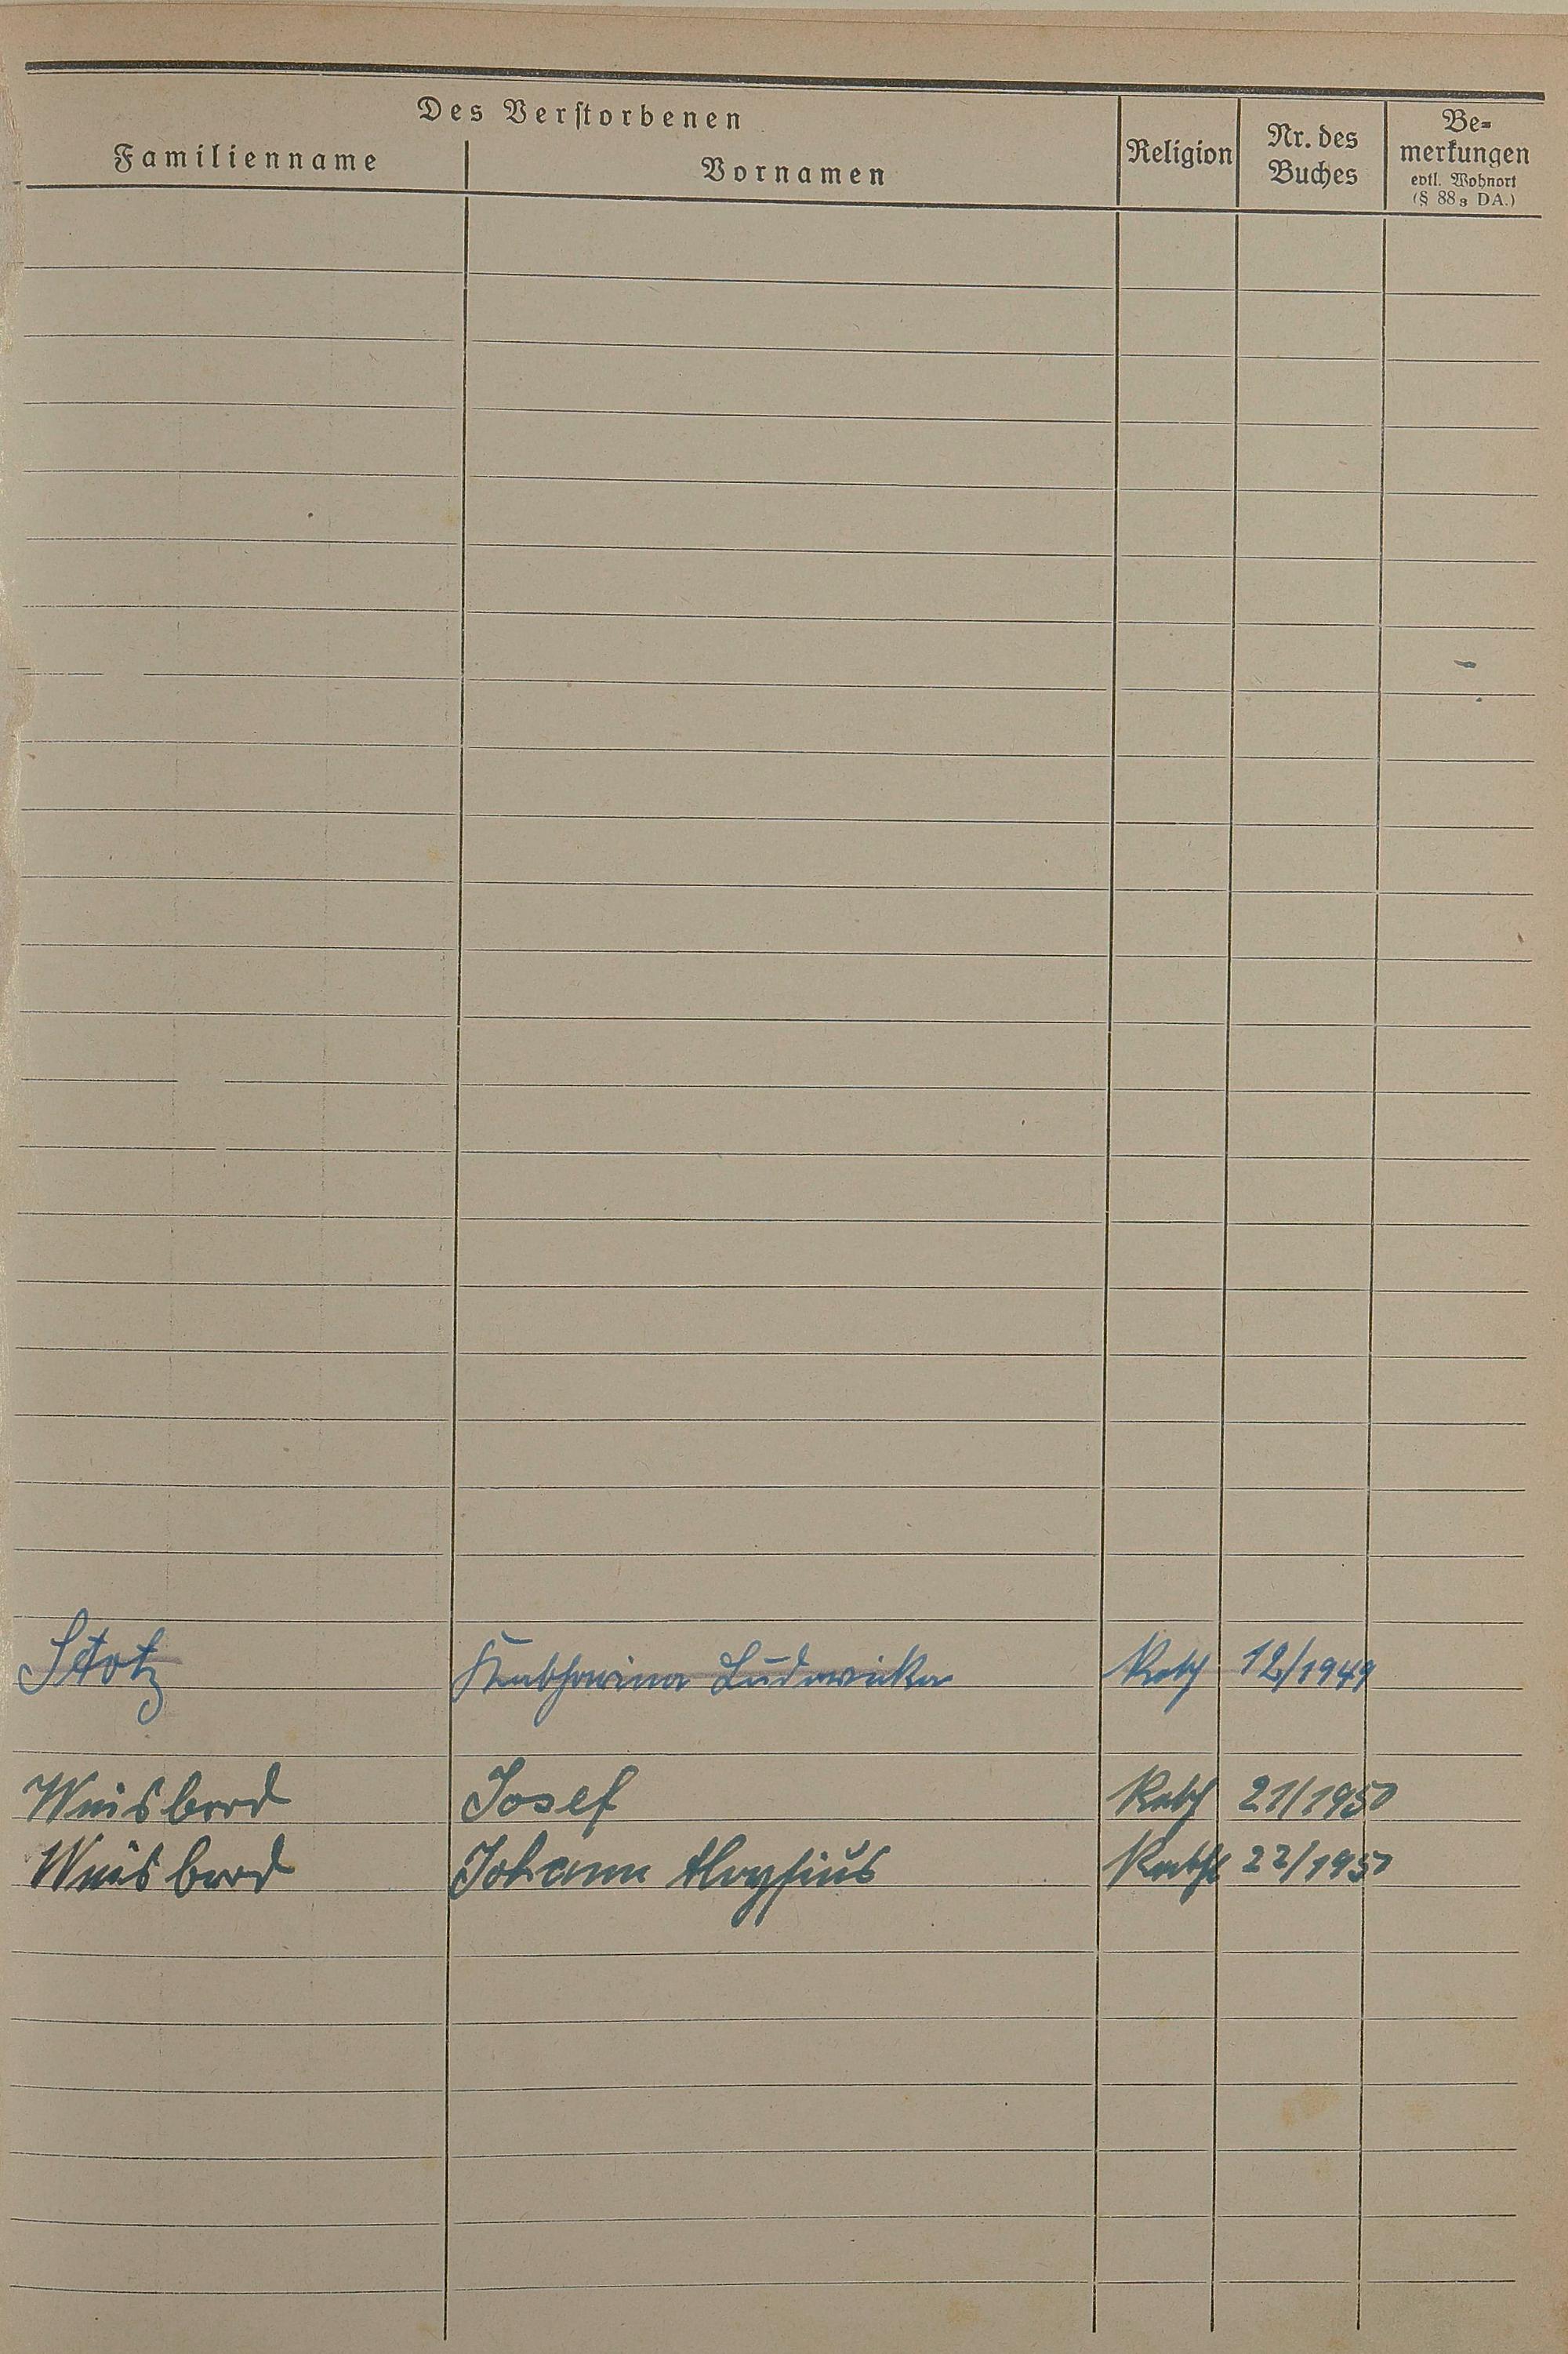 Des Verstorbenen
Familienname Vornamen Religion Nr. des Buches Be-
merkungen
evtl. Wohnort
(§ 88 3 DA.)
Stotz Katharina Ludowika Kath 12/1949
Weisbrod Josef Kath 21/1950
Weisbrod Johann Aloysius Kath 22/1950